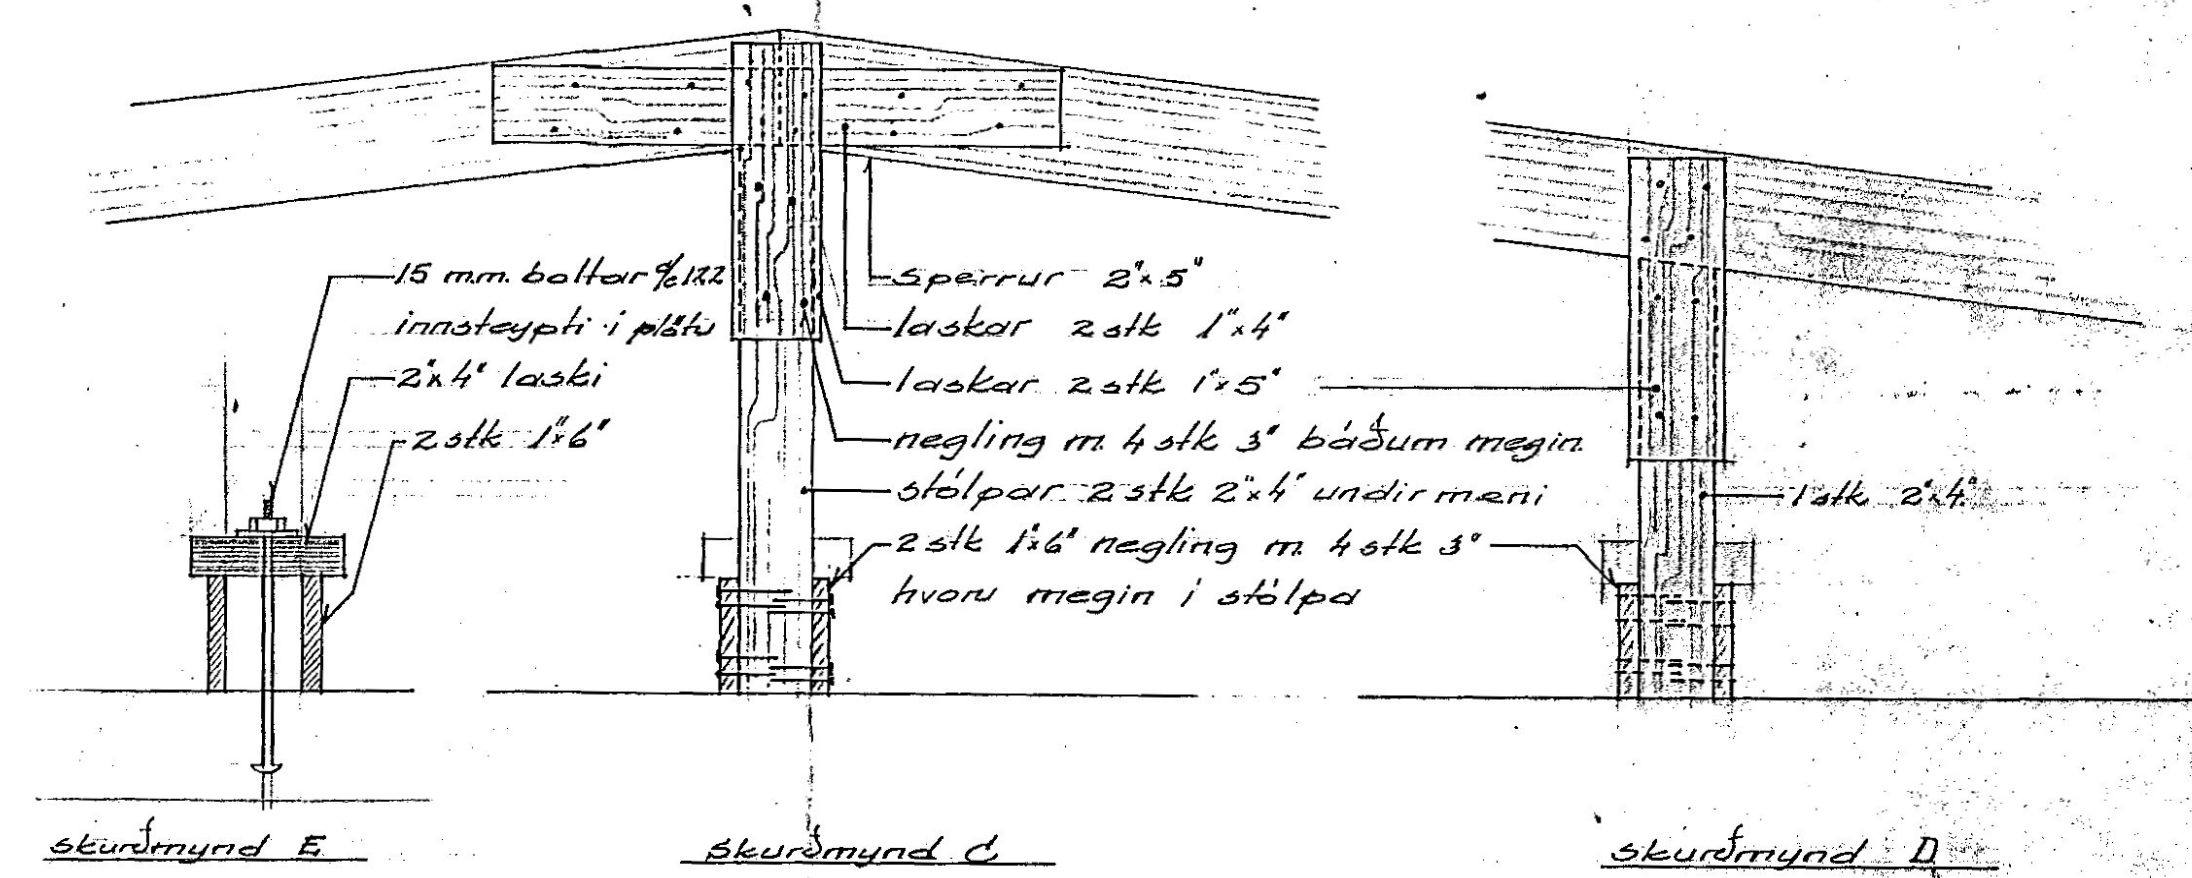 15 m.m. boltar c/c 122
innsteypti í plötu
2"x4" laski
2 stk 1"x6"
sperrur 2"x5"
laskar 2 stk 1"x4"
laskar 2 stk 1"x5"
negling m. 4 stk 3" báðum megin.
stólpar 2 stk 2"x4" undir mæni
1 stk 2"x4"
2 stk 1"x6" negling m. 4 stk 3"
hvoru megin í stólpa
skurðmynd E
skurðmynd C
skurðmynd D